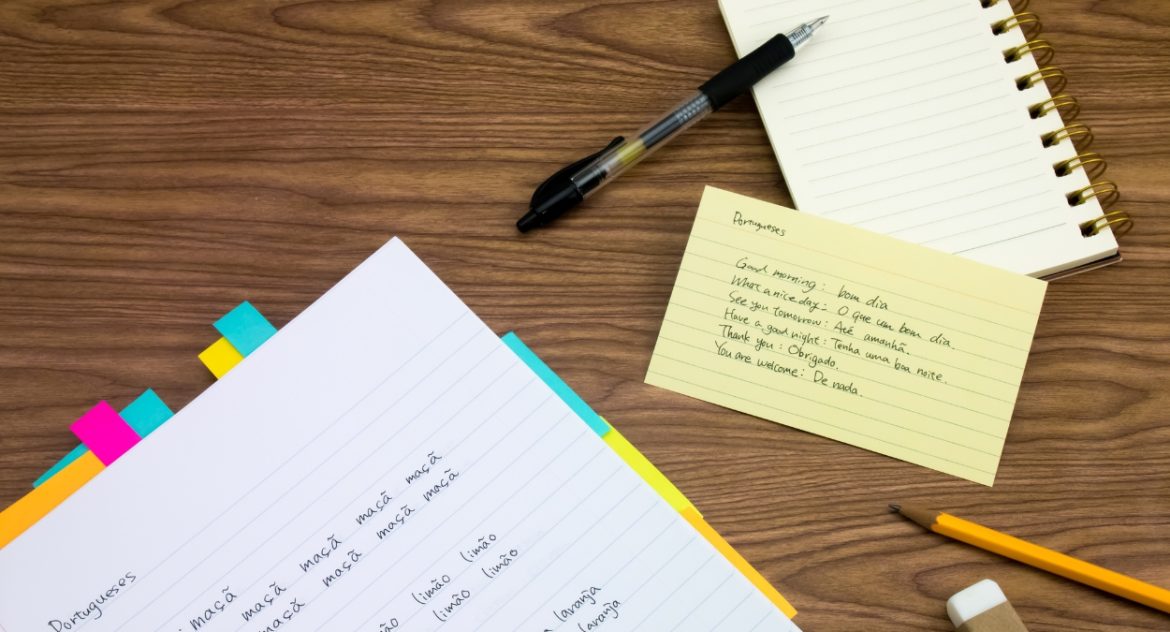 Portugueses
Good morning : bom dia
What a nice day : O que um bom dia.
See you tomorrow : Até amanhã.
Have a good night : Tenha uma boa noite.
Thank you : Obrigado.
You are welcome : De nada.
Portugueses
maçã maçã maçã maçã maçã
maçã maçã maçã maçã
limão limão
limão limão
laranja
laranja